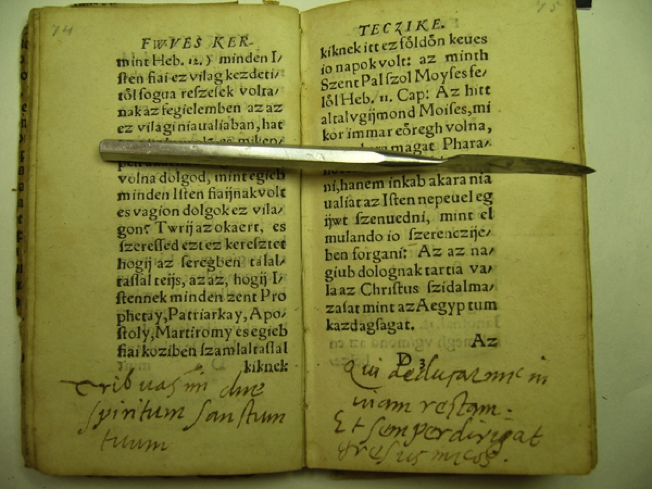 74
FWVES KER-
mint Heb. 12.) minden I/
ſten fiai ez vilag kezdeti/
tőlfogua reszeſek volta/
nak az fegielemben az az
ez vilagi niaualiaban, hat
volna dolgod, mint egieb
minden Iſten fiaijnak volt
es vagion dolgok ez vila/
gon? Twrij az okaert, es
szereſſed ezt ez keresztet
hogij az ſeregben talal/
taſſal teijs, az az, hogij I/
ſtennek minden zent Pro
phetay, Patriarkay, Apo/
ſtoly, Martiromy es egieb
fiai koziben ſzamlaltaſſal
kiknek
spiritum sanctum
tuum
75
TECZIKE.
kiknek itt ez főldőn keues
io napok volt: az minth
Szent Pal ſzol Moyſes fe/
lől Heb. 11. Cap: Az hitt
altal vgijmond Moiſes, mi
kor immar eőregh volna,
magat Phara/
ni, hanem inkab akara nia
ualiat az Iſten nepeuel eg
ijwt ſzenuedni, mint el
mulando io ſzerenczije/
ben forgani: Az az na/
giub dolognak tartia va/
la az Chriſtus ſzidalma/
zaſat mint az Aegyptum
kazdagſagat.
Az
D 3
viam rectam.
Et semper dirigat